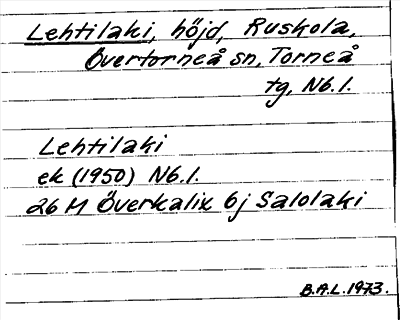 Lehtilaki, höjd, Ruskola,
Övertorneå sn, Torneå
tg, Nb.l.
Lehtilaki
ek (1950) Nb.l.
26 M Överkalix 6j Salolaki
B.A.L. 1973.